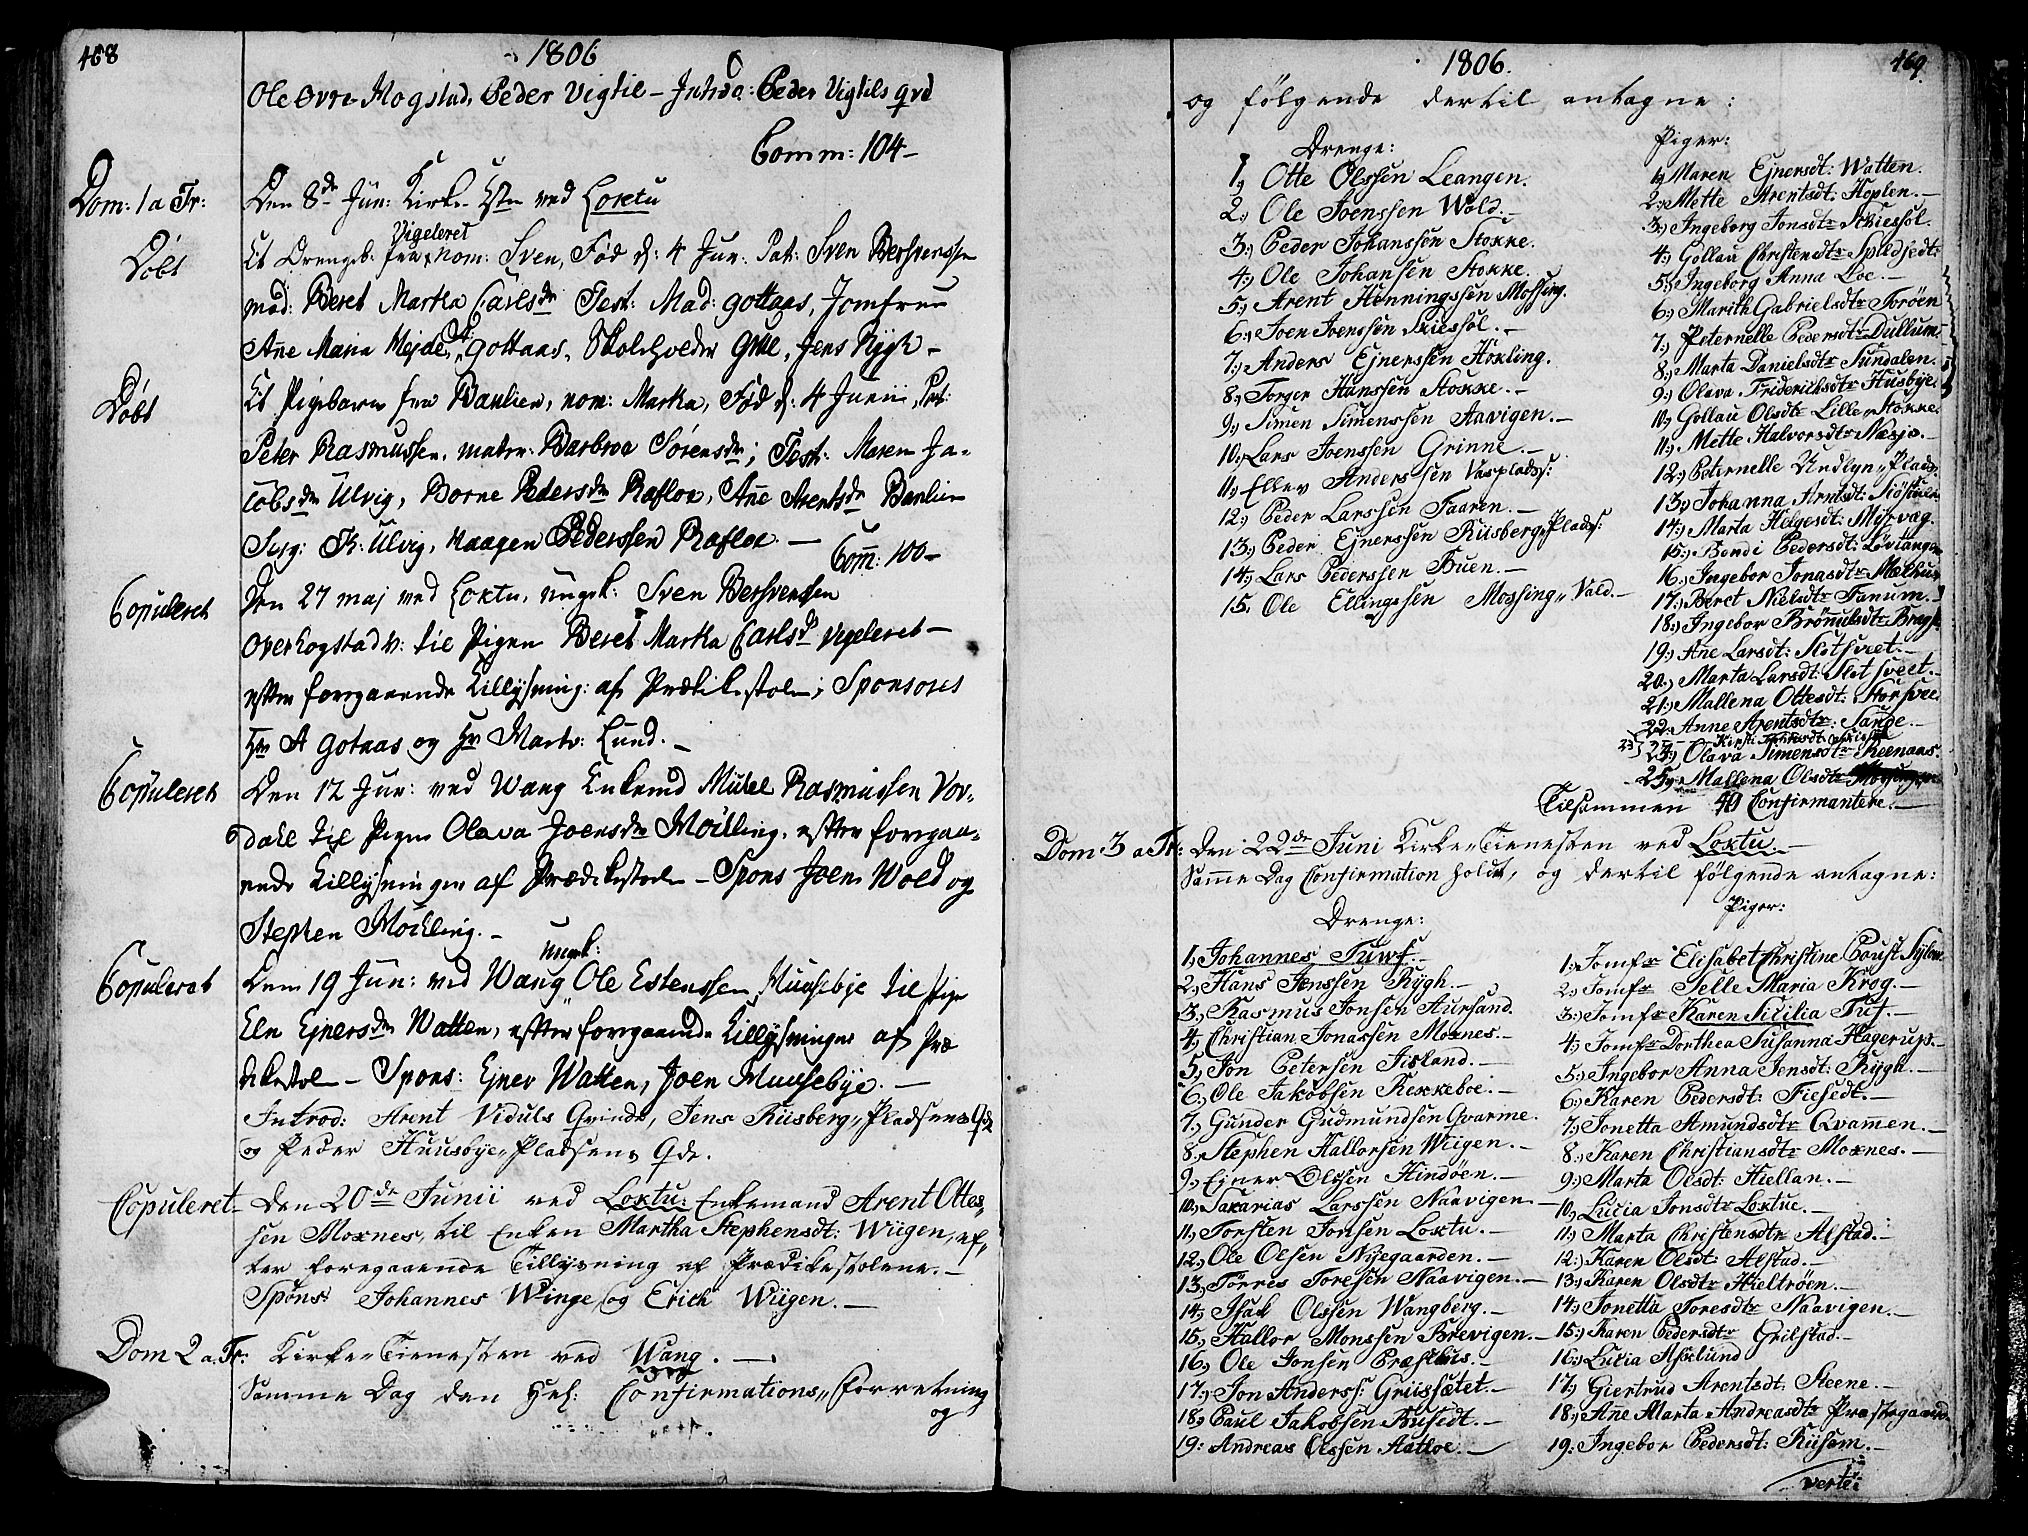 468
1806
Ole Øvre Mogstad, Peder Vigtil - Introd: Peder Vigtils qvd
Comm: 104-
Dom: 1 a Tr:
Den 8de Jun: Kirke Tstn ved Loxtu
Døbt
Et Drengeb. fra Vigeleret nom: Sven, Fød d: 4 Jun: Pat: Sven Bersvenssen
mad: Beret Martha Carlsdr Test: Mad: gottaas, Jomfrue
Añe Maria Mejdel, gottaas, Skoleholder , Jens Rygh -
Døbt
Et Pigebarn fra Baulien, nom: Martha, Fød d: 4 Junii, Pat:
Peter Rasmussen, mater: Barbroe Sørensdr; Test: Maren Ja-
cobsdr Ulvig, Borne Pedersdr Rafloe, Añe Arentsdr Baulien
Ulvig, Haagen Pederssen Rafloe -
Com̃: 100-
Copuleret
Den 27 maj ved Loxtu, ungk: Sven Bersvendsen
Overhogstad v: til Pigen Beret Martha Carlsdr Vigeleret -
efter foregaaende Tillysning: af Prædikestolen; Sponsores
Hr A Gotaas og Hr Martn: Lund. -
Copuleret
Den 12 Jun: ved Wang Enkemd Mikel Rasmussen Vor-
dahl til Pigen Olava Joensdr Møilling, efter foregaa-
ende Tillysninger af Prædikestolen - Spons Joen Wold og
Stephen Møilling. -
Copuleret
Den 19 Jun: ved Wang ungk: Ole Estenssen Muusebye til Pige
Eln Ejnersdr Watten, efter foregaaende Tillysninger af Præ
dikestol - Spons: Ejner Watten, Joen Muusebye. -
Introd: Arent Viduls Qvinde, Jens Riisberg,, Pladsens Qde
og Peder Huusbye,, Pladsens Qde.
Copuleret
Den 20de Junii ved Loxtu: Enkemand Arent Ottes,,
sen Moxnes, til Enken Martha Stephensdt: Wiigen, ef,,
ter foregaaende Tillysning af Prædikestolene. -
Spons: Johannes Winge og Erich Wiigen. -
Dom 2 a. Tr:
Kirke,,Tienesten ved Wang. -
Samme Dag den Hel: Confirmations,, Forretning
og
1806.
469.
og følgende dertil antagne:
Drenge:
1, Otte Olssen Leangen.
2, Ole Joenssen Wold. -
3, Peder Johanssen Stokke.
4, Ole Johansen Stokke.
5, Arent Henningssen Mossing.
6, Joen Joenssen Skiessol. -
7, Anders Ejnerssen Hokling.
8, Torger Hanssen Stokke. -
9, Simen Simenssen Aavigen. -
10, Lars Joenssen Grinne. -
11, Ellev Anderssen Vasplads:
12, Peder Larssen Faaren. -
13, Peder Ejnerssen Riisberg,, Plads:
14, Lars Pederssen Buen. -
15. Ole Ellingssen Mossing,, Vald. -
Piger:
1, Maren Ejnersdt: Watten.
2, Mette Arentsdt: Heplen. -
3, Ingeborg Jonsdtr Skiessol.
4, Gollau Christensdtr
5, Ingeborg Anna Loe -
6, Marith Gabrielsdtr Torøen
7, Peternelle Pedersdtr Dullum
8, Marta Danielsdtr Sundalen.
9, Olava Friderichsdtr Husbye.
10, Gollau Olsdtr Lille,, Stokke.
11, Mette Halvorsdtr Nesjo. -
12, Peternelle Undlyn,, Plads.
13, Johanna Arntsdt:
14, Marta Helgesdt: Myrvag.
15, Bendi Pedersdt: Løvtangen
16, Ingebor Jonasdtr Melhus
17, Beret Nielsdtr Fanum. -
18, Ingebor
19, Añe Larsdt: Slotsveet. -
20, Marta Larsdt: Slotsveet. -
21, Mallena Ottesdt:
22. Anne Arentsdtr: Sande. -
23
24, Olava Simensdtr Reenaas.
25, Mallena Olsdtr
Tilsammen 40 Confirmantere. -
Dom 3 a Tr:
Den 22de Juni Kirke,,Tienesten ved Loxtu. -
Sam̃e Dag Confirmation holdt, og dertil følgende antagne:
Drenge:
1, Johannes Tuxf. -
2, Hans Jenssen Rygh. -
3, Rasmus Jonsen Aursand.
4, Christian Jonassen Moxnes. -
5, Jon Petersen Fisland. -
6, Ole Jakobsen Rekkeboe. -
7, Gunder Gudmundsen Qvarme.
8, Stephen Hallorsen Wiigen. -
9, Ejner Olssen Hindøen. -
10, Sakarias Larssen Naavigen. -
11, Torsten Jonsen Loxtu. -
12, Ole Olsen Nyegaarden. -
13, Törres Toresen Naavigen. -
14, Isack Olssen Wangberg. -
15, Hallor Monssen Brevigen. -
16, Ole Jonsen Præsthus. -
17, Jon Anderss: Griissætet. -
18, Paul Jakobsen Busedt. -
19: Andreas Olssen Aatloe. -
Piger:
1, Jomfr Elisabet Christine Coust
2, Jomfr Selle Maria Krog. -
3, Jomfr Karen Sicilia Tuf. -
4, Jomfr Dorthea Susanna Hagerup. -
5, Ingebor Anna Jensdt: Rygh. -
6, Karen Pedersdt: Fiesedt. -
7, Jonetta Amundsdtr Qvammen. -
8, Karen Christiansdtr Moxnes. -
9, Marta Olsdt: Hiellan. -
10, Lucia Jonsdtr Loxtue. -
11, Marta Christensdtr Alstad. -
12, Karen Olsdt: Alstad. -
13, Karen Olsdtr Hieltrøen. -
14, Jonetta Toresdtr Naavigen. -
15, Karen Pedersdtr Grilstad. -
16, Lucia Asklund
17, Giertrud Arentsdt: Steene. -
18, Añe Marta Andreasdtr Præstegaard
19: Ingebor Pedersdt: Riisem. -
vertei